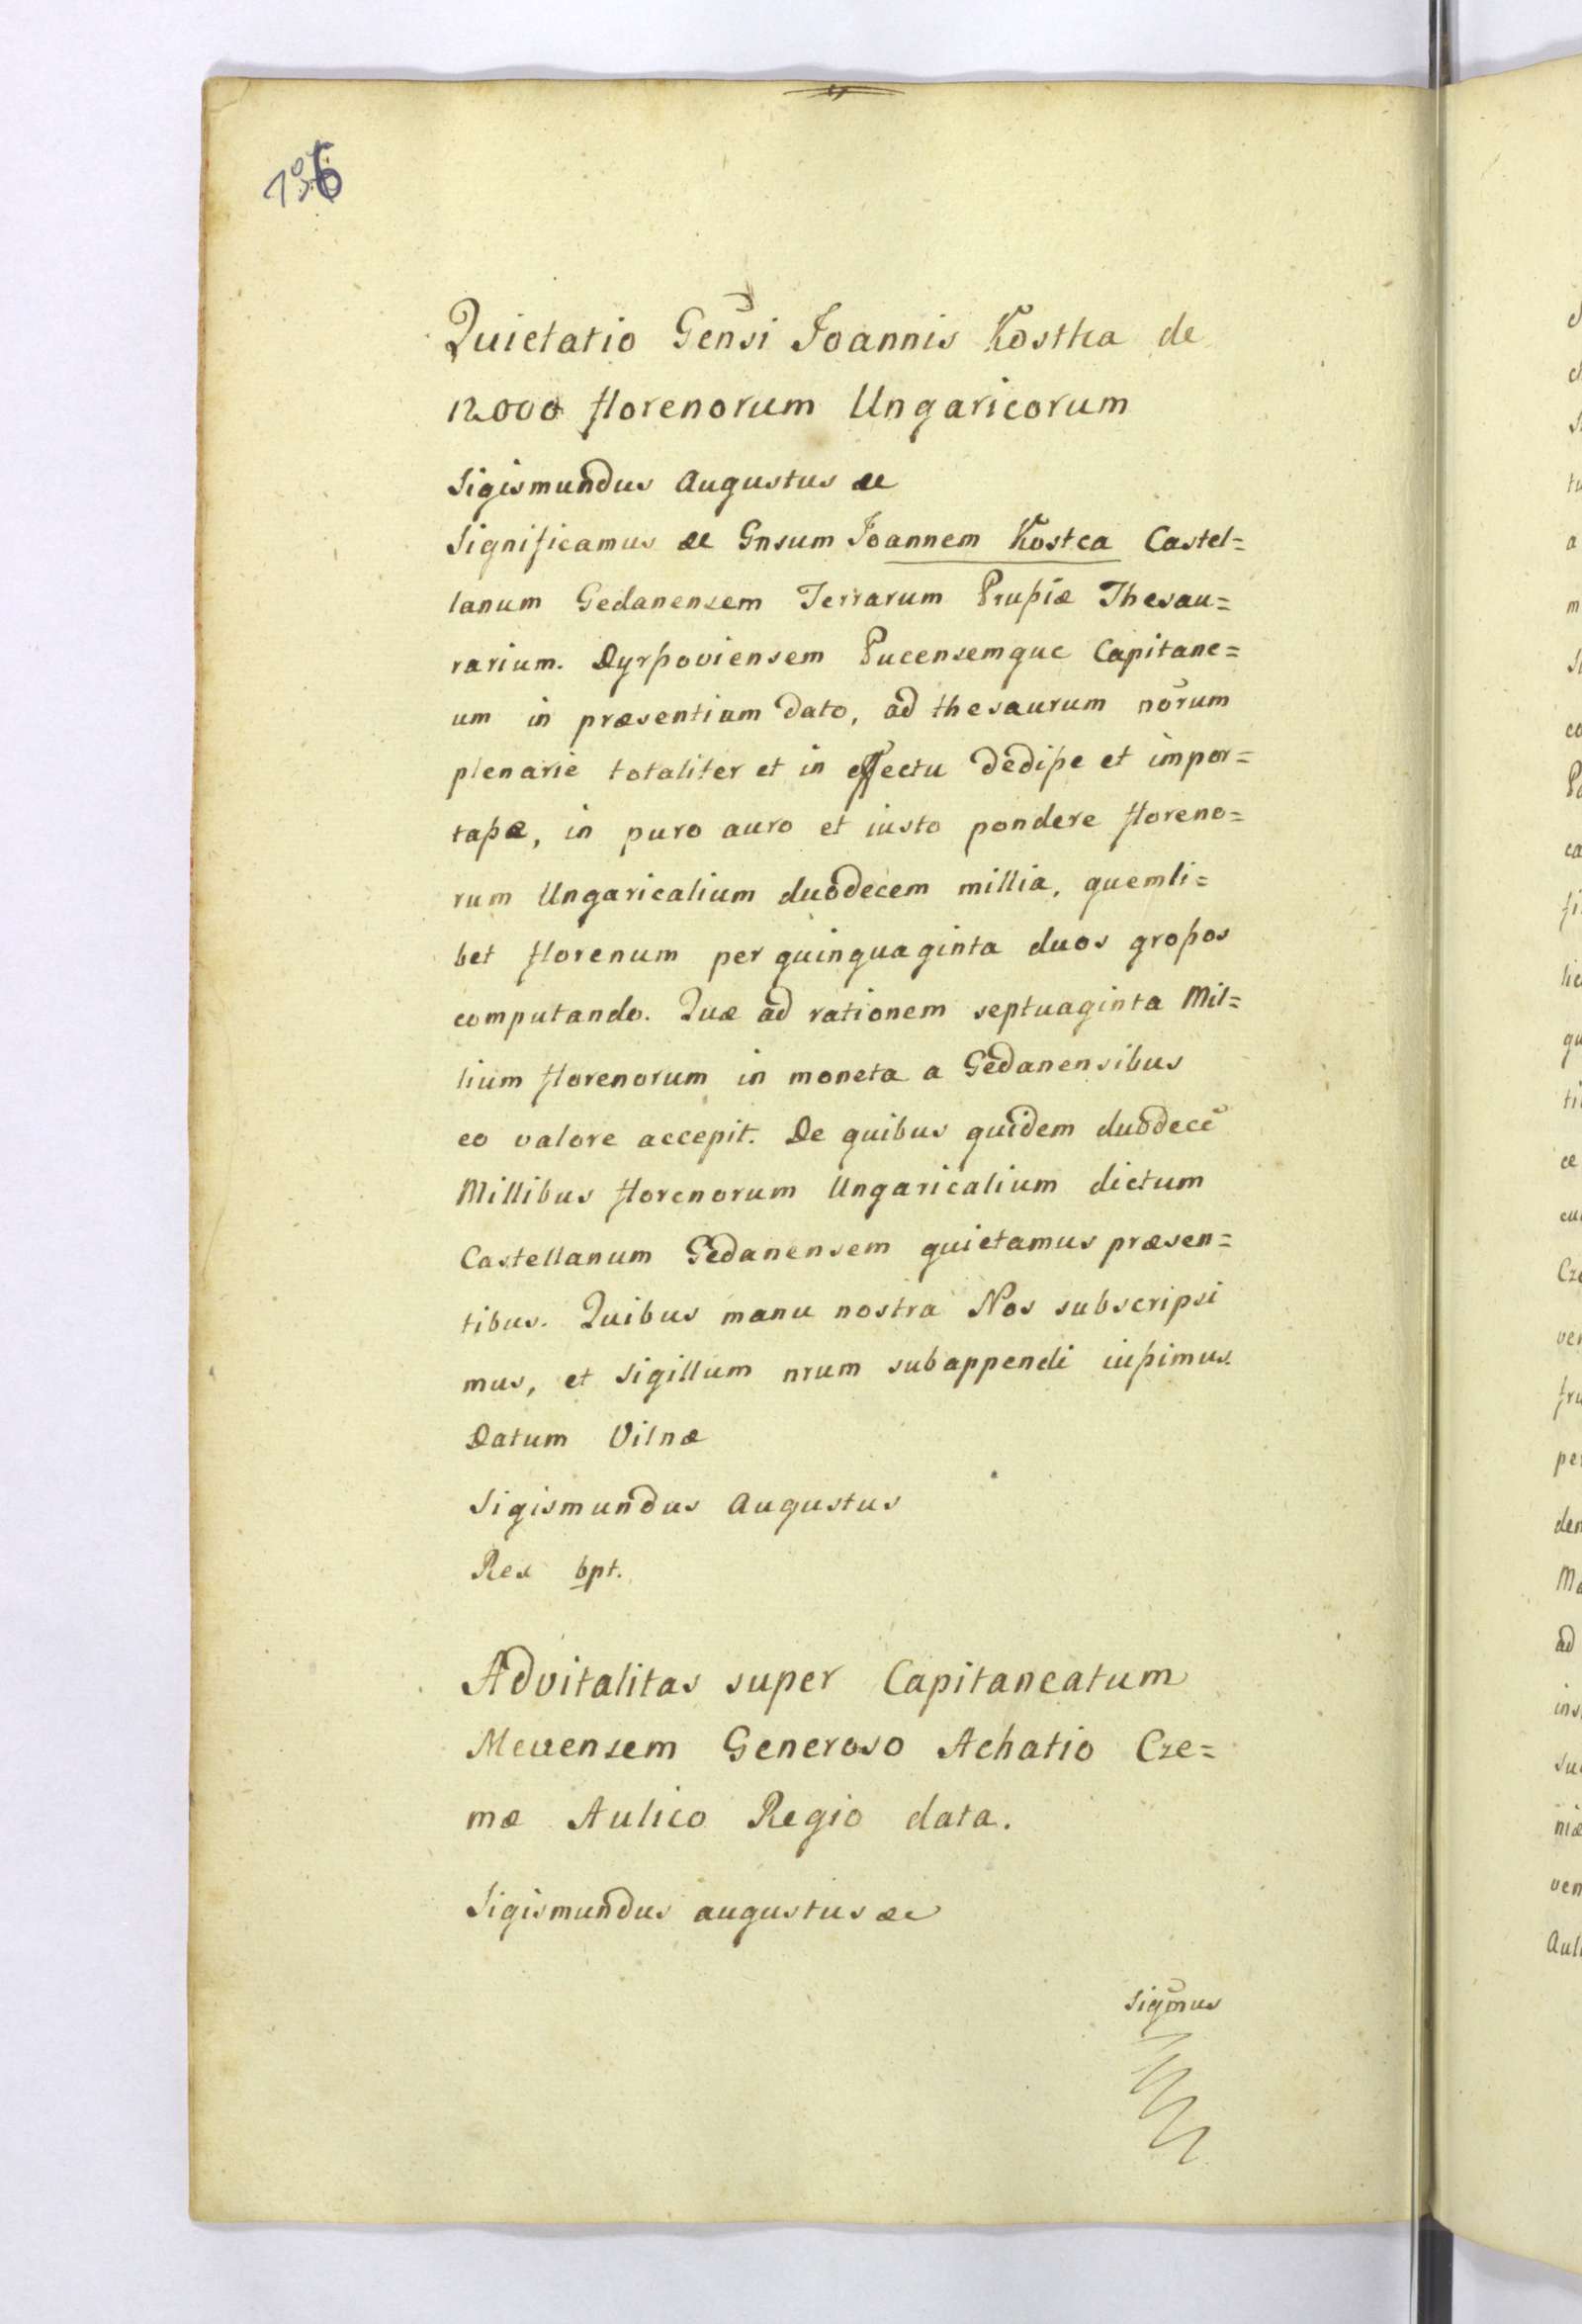 136
Quietatio Gen͂si Joannis Kostka de
12000 florenorum Ungaricorum
Sigismundus Augustus &c
Significamus &c Gnsum Joannem Kostca Castel=
lanum Gedanensem Terrarum Prußiæ Thesau=
rarium. Dyrßoviensem Pucensemque Capitane=
um in præsentium dato, ad thesaurum nōrum
plenarie totaliter et in effectu dediße et impor=
taßæ, in puro auro et iusto pondere floreno=
rum Ungaricalium duodecem millia, quemli=
bet florenum per quinquaginta duos großos
computando. Quæ ad rationem septuaginta Mil=
lium florenorum in moneta a Gedanensibus
eo valore accepit. De quibus quidem duodecē
Millibus florenorum Ungaricalium dictum
Castellanum Gedanensem quietamus præsen=
tibus. Quibus manu nostra Nos subscripsi
mus, et sigillum nrum subappendi iußimus.
Datum Vilnæ
Sigismundus Augustus
Rex ßpt.
Advitalitas super Capitaneatum
Mevensem Generoso Achatio Cze=
mæ Aulico Regio data.
Sigismundus augustus &c
Sigm̄us